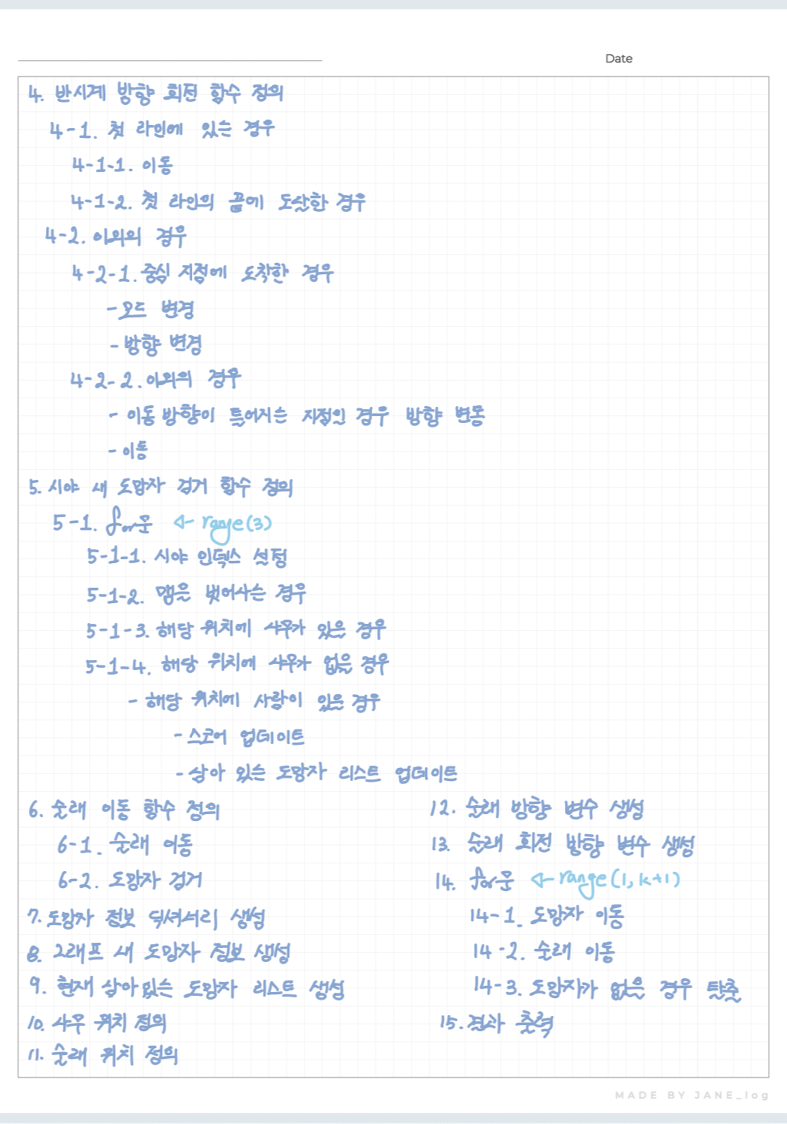 Date
4. 반시계 방향 회전 함수 정의
4-1. 첫 라인에 있는 경우
4-1-1. 이동
4-1-2. 첫 라인의 끝에 도착한 경우
4-2. 이외의 경우
4-2-1. 중심 지점에 도착한 경우
- 모드 변경
- 방향 변경
4-2-2. 이외의 경우
- 이동 방향이 틀어지는 지점인 경우 방향 변동
- 이동
5. 시야 내 도망자 검거 함수 정의
5-1. for문 ◁- range(3)
5-1-1. 시야 인덱스 설정
5-1-2. 맵을 벗어나는 경우
5-1-3. 해당 위치에 나무가 있을 경우
5-1-4. 해당 위치에 나무가 없을 경우
- 해당 위치에 사람이 있을 경우
- 스코어 업데이트
- 살아 있는 도망자 리스트 업데이트
6. 술래 이동 함수 정의
6-1. 술래 이동
6-2. 도망자 검거
7. 도망자 정보 딕셔너리 생성
8. 그래프 내 도망자 정보 생성
9. 현재 살아있는 도망자 리스트 생성
10. 나무 위치 정의
11. 술래 위치 정의
12. 술래 방향 변수 생성
13. 술래 회전 방향 변수 생성
14. for문 ◁- range(1, k+1)
14-1. 도망자 이동
14-2. 술래 이동
14-3. 도망자가 없을 경우 탈출
15. 결과 출력
MADE BY JANE_log